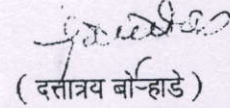 ( दत्तात्रय बोऱ्हाडे )